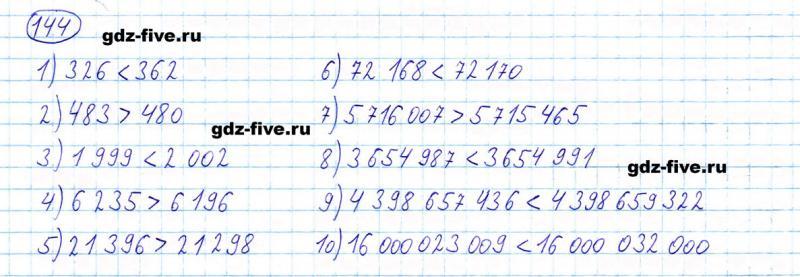 144
gdz-five.ru
1) 326 < 362
2) 483 > 480
gdz-five.ru
3) 1 999 < 2 002
4) 6 235 > 6 196
5) 21 396 > 21 298
6) 72 168 < 72 170
7) 5 716 007 > 5 715 465
8) 3 654 987 < 3 654 991
gdz-five.ru
9) 4 398 657 436 < 4 398 659 322
10) 16 000 023 009 < 16 000 032 000